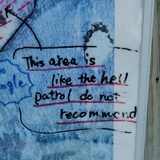 This area is
like the hell
patrol do not
recommend